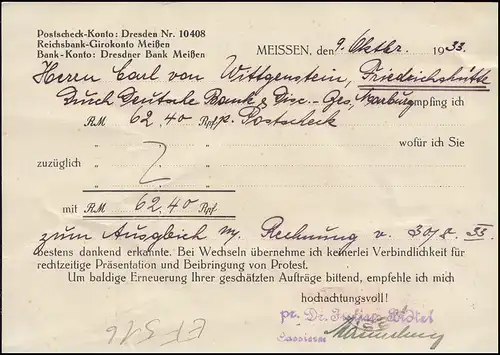 Postscheck-Konto: Dresden Nr. 10408
Reichsbank-Girokonto Meißen
Bank-Konto: Dresdner Bank Meißen
MEISSEN, den 9. Oktbr. 1933.
Herrn Carl von Wittgenstein, Friedrichshütte
Durch Deutsche Bank & Disc.-Ges., Marburg empfing ich
RM 62,40 Rpf p. Postscheck
" " " wofür ich Sie
zuzüglich " "
" " "
mit RM 62,40 Rpf
zum Ausgleich m/ Rechnung v. 30/8. 33
bestens dankend erkannte. Bei Wechseln übernehme ich keinerlei Verbindlichkeit für
rechtzeitige Präsentation und Beibringung von Protest.
Um baldige Erneuerung Ihrer geschätzten Aufträge bittend, empfehle ich mich
hochachtungsvoll!
pr. Dr.